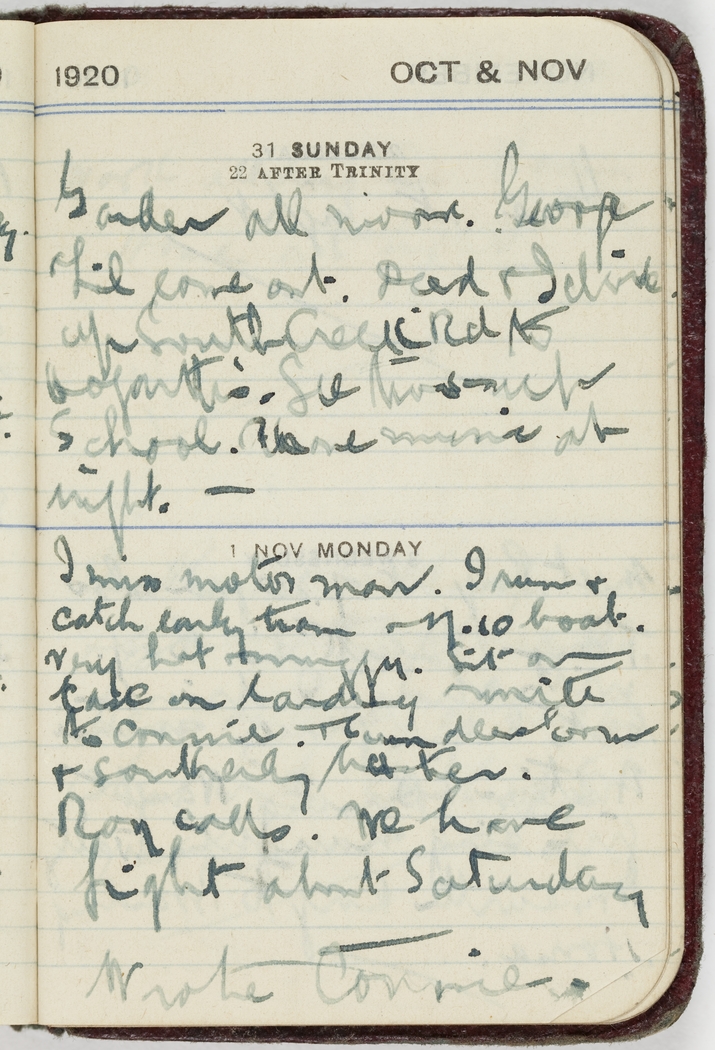 1920 OCT & NOV
31 SUNDAY
22 AFTER TRINITY
Garden all morn. George
Lil come out. Dad & I drive
up South Creek Rd to
Hogarth's. See
School. Have music at
night. —
1 NOV MONDAY
I miss motor man. I run &
catch early tram & 7.10 boat.
Very hot & muggy. Sit on
case on landing & write
to Connie. Thunderstorm
& southerly buster.
Roy calls. We have
fight about Saturday
Wrote Connie.